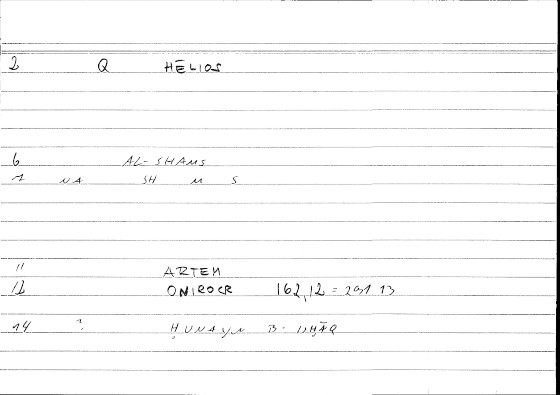 2 Q HĒLIOS
6 AL-SHAMS
7 NA SH M S
11 ARTEM
12 ONIROCR 162,12 = 291.13
14 ? ḤUNAYN B.